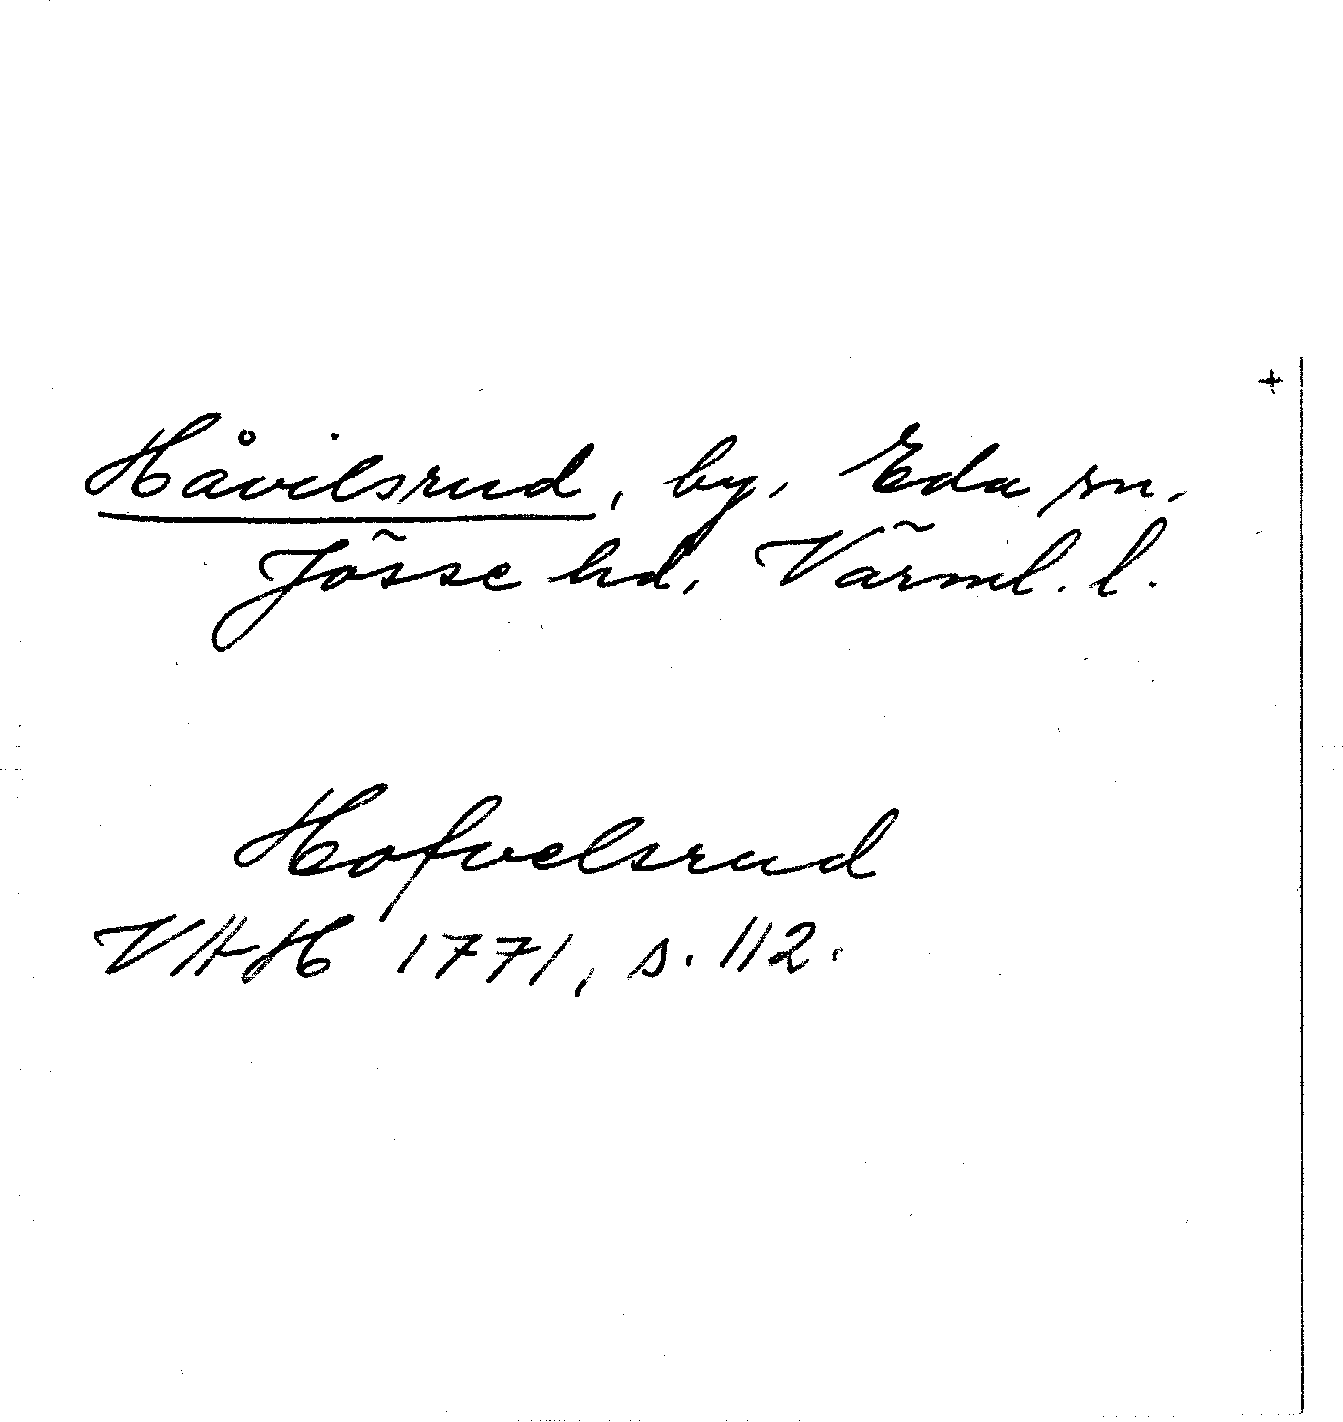 +
Håvilsrud, by, Eda sn.
Jösse hd, Värml. l.
Hofvelsrud
VHH 1771, s. 112.